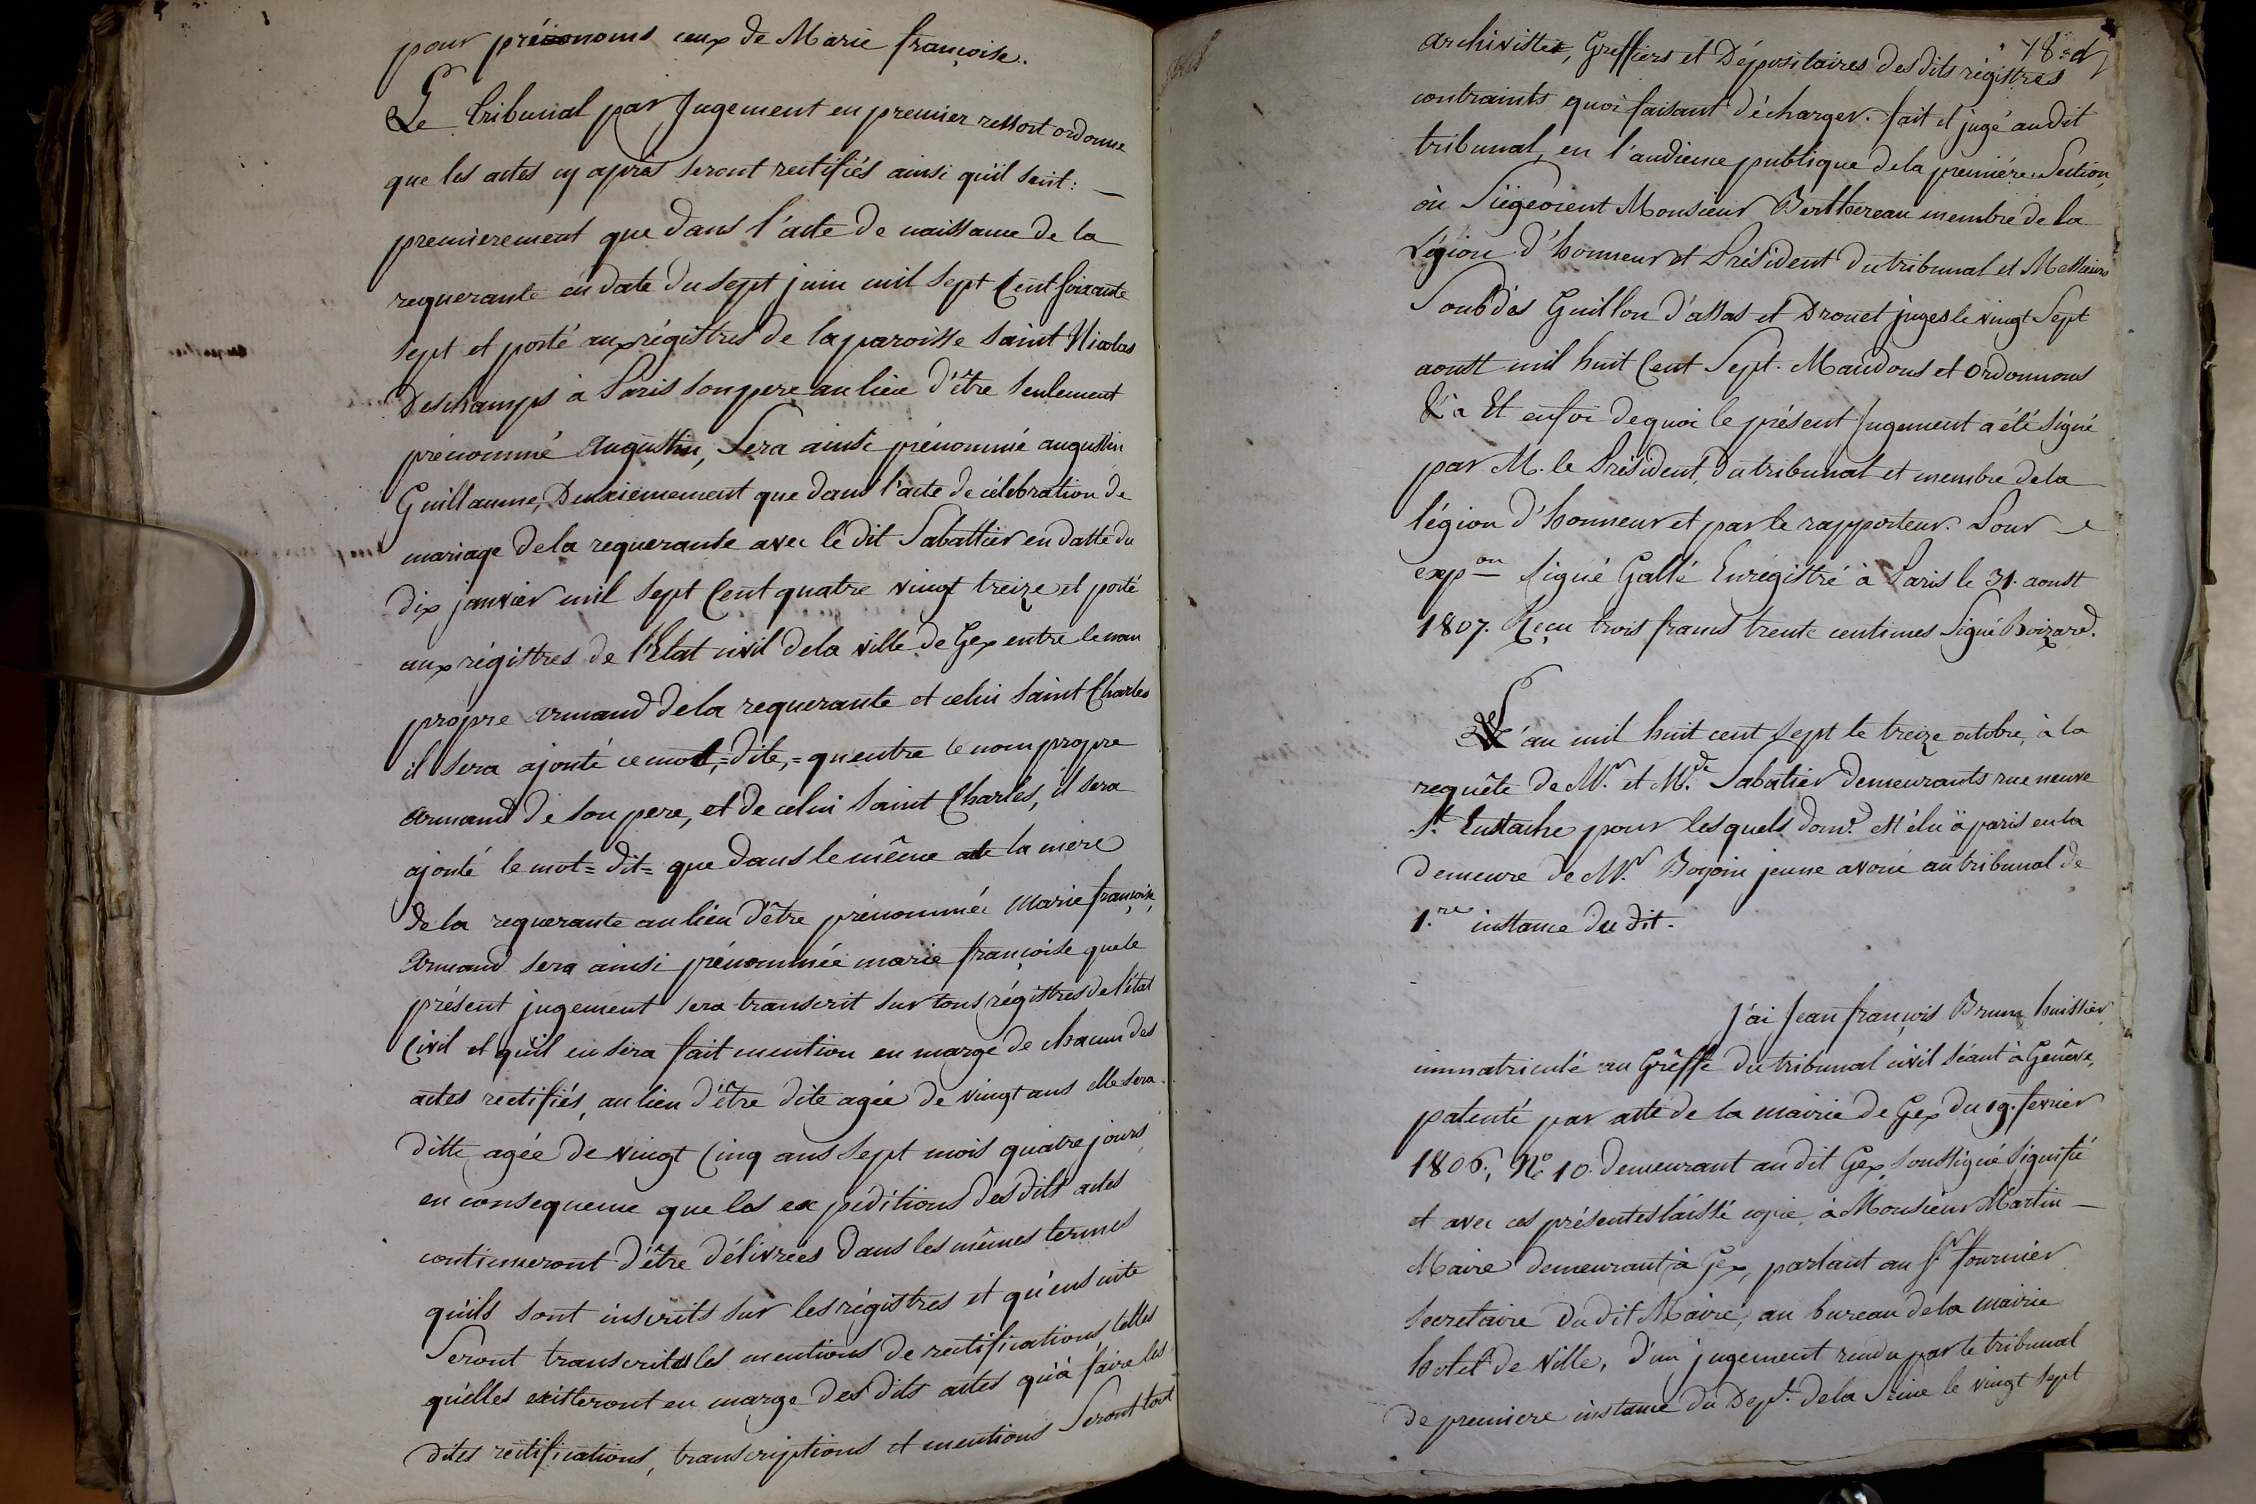 pour prénoms ceux de Marie françoise.
Le Tribunal par Jugement en premier ressort ordonne
que les actes cy après seront rectifiés ainsi qu'il suit:
premierement que dans l'acte de naissance de la
requerante en date du sept juin mil sept Cent soixante
sept et porté aux régistres de la paroisse saint Nicolas
Deschamps à Paris son pere au lieu d'être seulement
prénommé Augustin, Sera ainsi prénommé augustin
Guillaume, Deuxiemement que dans l'acte de célébration de
mariage de la requerante avec le dit Sabattier en datte du
dix janvier mil sept Cent quatre vingt treize et porté
aux régistres de l'Etat civil de la ville de Gex entre le nom
propre armand de la requerante et celui saint Charles
il sera ajouté ce mot,=dite,= qu'entre le nom propre
armand de son pere, et de celui saint Charles, il sera
ajouté le mot= dit= que dans le même acte la mere
de la requerante au lieu d'être prénommée Marie françoise,
Armand sera ainsi prénommée marie françoise que le
présent jugement sera transcrit sur tous régistres de l'état
Civil et qu'il en sera fait mention en marge de chacun des
actes rectifiés, au lieu d'être dite agée de vingt ans elle sera
ditte agée de vingt Cinq ans sept mois quatre jours,
en consequence que les expéditions des dits actes
continueront d'être délivrées dans les mêmes termes
qu'ils sont inscrits sur les régistres et qu'ensuite
Seront transcrites les mentions de rectifications telles
qu'elles existeront en marge des dits actes qu'à faire les
dites rectifications, transcriptions et mentions Seront tout
78
archivistes, Greffiers et Dépositaires des dits régistres
contraints quoi faisant décharger. fait et jugé au dit
tribunal en l'audience publique de la premiére Section,
où Siégeoient Monsieur Berthereau membre de la
Légion d'honneur et Président du tribunal et Messieurs
Soubdès Guillon d'assas et Drouet juges le vingt Sept
aoust mil huit Cent Sept. Mandons et Ordonnons
&a Et en foi de quoi le présent Jugement a été signé
par M. le Président du tribunal et membre de la
légion d'honneur et par le rapporteur. Pour
expon signé Gallé Enrégistré à Paris le 31. aoust
1807. Reçu trois francs trente centimes Signé Boizard.
L'an mil huit cent sept le treize octobre, à la
requête de Mr. et Mde. Sabatier demeurants rue neuve
St. Eustache pour lesquels domle. est élu à paris en la
demeure de Mr. Bojoin jeune avoué au tribunal de
1.re instance du dit.
J'ai Jean françois Brun huissier
immatriculé au Grêffe du tribunal civil séant à Genêve,
patenté par acte de la mairie de Gex du 19. fevrier
1806., No. 10. demeurant au dit Gex, soussigné signifié
et avec ces présentes laissé copie, à Monsieur Martin
Maire demeurant à Gex, parlant au Sr. fournier
secretaire du dit Maire, au bureau de la mairie
hotel de ville, d'un jugement rendu par le tribunal
de premiere instance du Dept. de la Seine le vingt sept